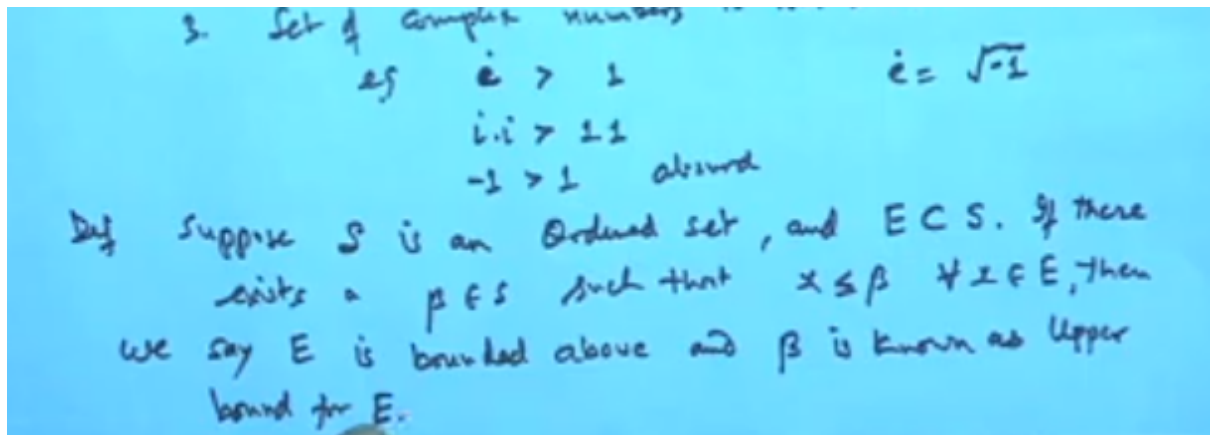 3. Set of complex numbers
eg i > 1 i = √-1
i.i > 1 1
-1 > 1 absurd
Def Suppose S is an Ordered set, and E ⊂ S. If there
exists a β ∈ S such that x ≤ β ∀ x ∈ E, then
we say E is bounded above and β is known as Upper
bound for E.